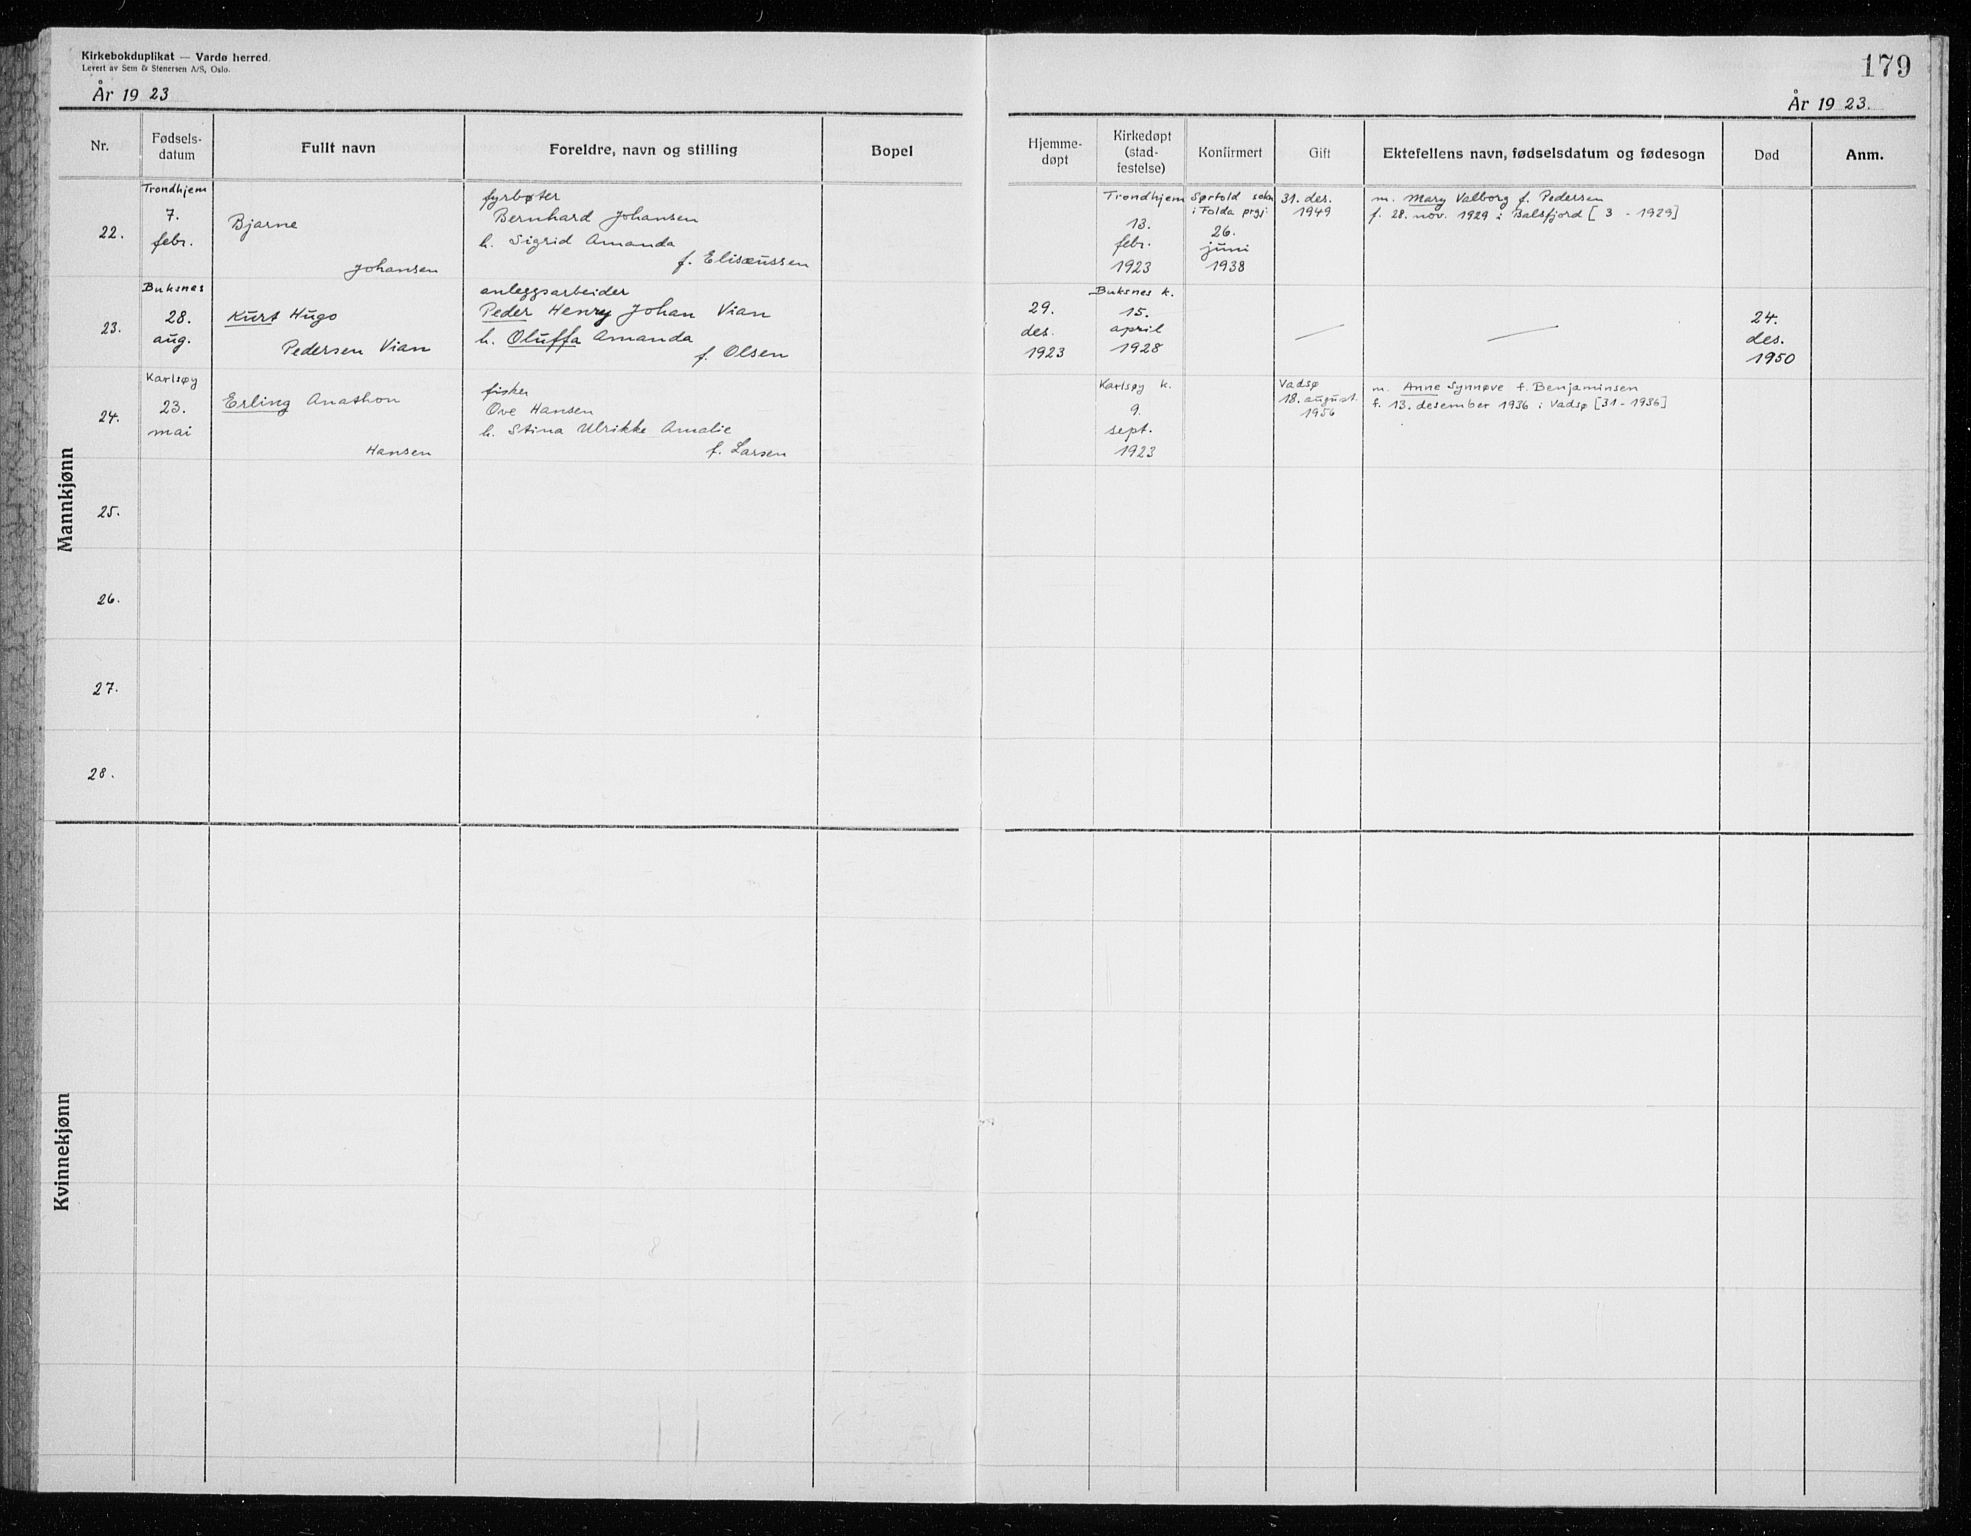 Kirkebokduplikat — Vardø herred.
Levert av Sem & Stenersen A/S, Oslo.
År 19 23
Nr.
Fødsels-
datum
Fullt navn
Foreldre, navn og stilling
Bopel
Mannkjønn
22.
Trondhjem
7.
febr.
Bjarne
Johansen
fyrbøter
Bernhard Johansen
h. Sigrid Amanda
f. Elisæussen
23.
Buksnes
28.
aug.
Kurt Hugo
Pedersen Vian
anleggsarbeider
Peder Henry Johan Vian
h. Oluffa Amanda
f. Olsen
24.
Karlsøy
23.
mai
Erling Anathon
Hansen
fisker
Ove Hansen
h. Stina Ulrikke Amalie
f. Larsen
25.
26.
27.
28.
Kvinnekjønn
179
År 19 23.
Hjemme-
døpt
Kirkedøpt
(stad-
festelse)
Konfirmert
Gift
Ektefellens navn, fødselsdatum og fødesogn
Død
Anm.
Trondhjem
13.
febr.
1923
Sørfold sokn
i Folda prgj.
26.
juni
1938
31. des.
1949
m. Mary Valborg f. Pedersen
f. 28. nov. 1929 i Balsfjord [3 - 1929]
29.
des.
1923
Buksnes k.
15.
april
1928
—
—
24.
des.
1950
Karlsøy k.
9.
sept.
1923
Vadsø
18. august
1956
m. Anne Synnøve f. Benjaminsen
f. 13. desember 1936 i Vadsø [31 - 1936]